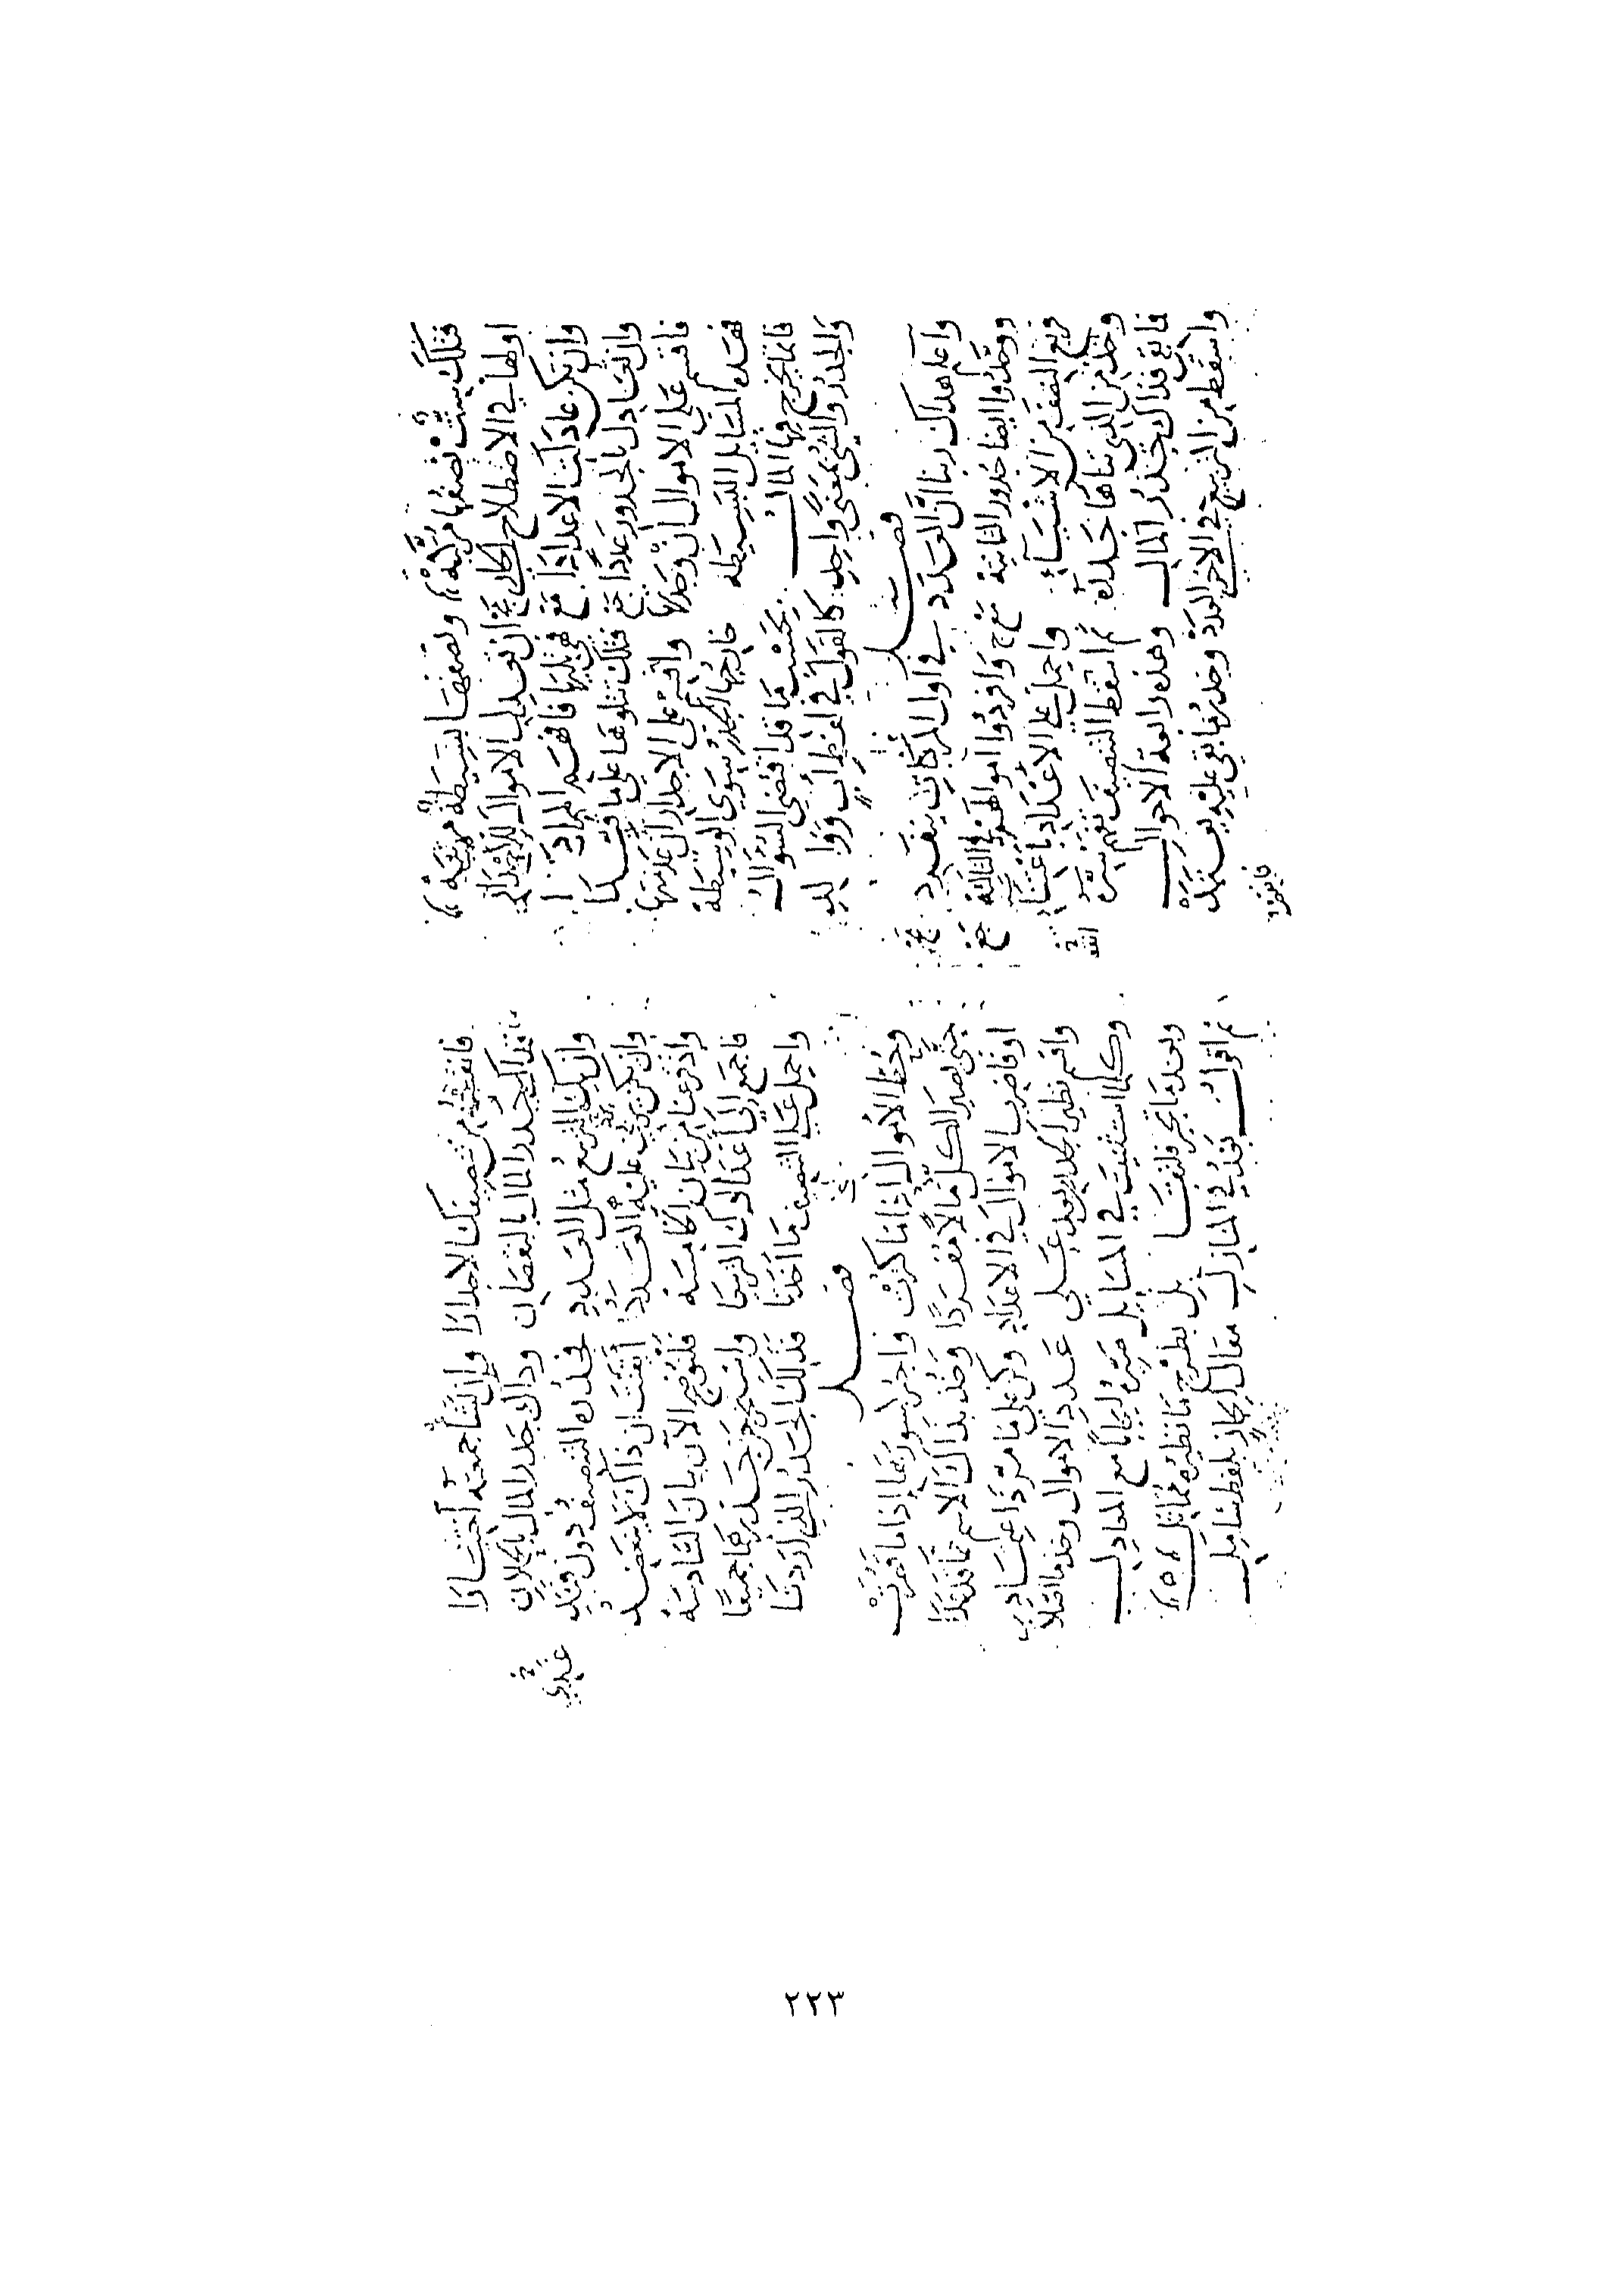 فتلك ست نصفها مركبة ونصفها بسيطة مرتبة
اولها في الاصطلاح الجاري ان تعدل الاموال للاجذار
وان تكن عادلت الاعدادا فهي تليها فافهم المرادا
وان تعادل بالجذور عددا فتلك تتلوها على ما
فاقسم على الاموال ان وجدتها واقسم على الاجذار ان عدمتها
فهذه المسايل البسيطه خارجها الجذر سوى الوسيطة
فانما يخرج فيها المال بحسب ما قد اقتضى السؤال
والجذر والشي بمعنى واحد كالقول في لفظ اب ووالد
فصل
واعلم هداك ربنا ان العدد في اول المركبات ينفرد
ووحدوا ايضا جذور الثانية وافردوا اموالهم في الثالثة
فربع النصف من الاشياء واحمل على الاعداد باعتناء
وخذ من الذي تناهى جذره ثم انقص التنصيف تفهم سره
فما بقي فذاك جذر المال وهذه رابعة الاحوال
واسقط من التربيع في الاخرى العدد وجذر ما بقي عليه يعتمد
فانقصه
فانقصه من تنصيفك الاجذارا وان تشأ جمعته اختيارا
فذاك جذر المال بالنقصان وذاك جذر المال بالحملان
وان يكن التربيع مثل العدد فجذره التنصيف دون فند
وان يكن يربي عليه العدد ايقنت ان ذاك لا ينعضد
واذ فرغنا من بيان الخامسة فلنوضح الآن بيان السادسة
فاجمع الى اعدادك التربيعا واستخرجن جذرهما جميعا
واحمل على التنصيف ما اخذتا فذلك الجذر الذي اردتا
فصل
وحط الاموال اذا ما كثرت واجبر كسورها اذا ما قصرت
حتى يصير الكل مالا مفردا وخذ بذاك الاسم مما قد
او فاضرب الاموال في الاعداد وكن على ما مر ذا اعتماد
واقسم نظير الجذر بعد على عدد الاموال وخذ ما
وكلما استثنيت في المسايل صيره ايجابا مع المعادل
وبعد ما تجبر فلتقابل بطرح ما نظيره مماثل
ثم اقول بعد في المنازل مقال ايجاز بلفظ شامل
٢٢٣